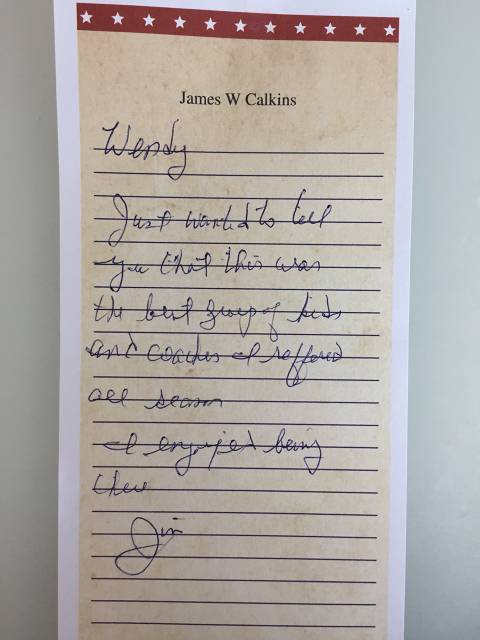 James W Calkins
Wendy
Just wanted to tell
you that this was
the best group of kids
and coaches I reffered
all season
I enjoyed being
there
Jim